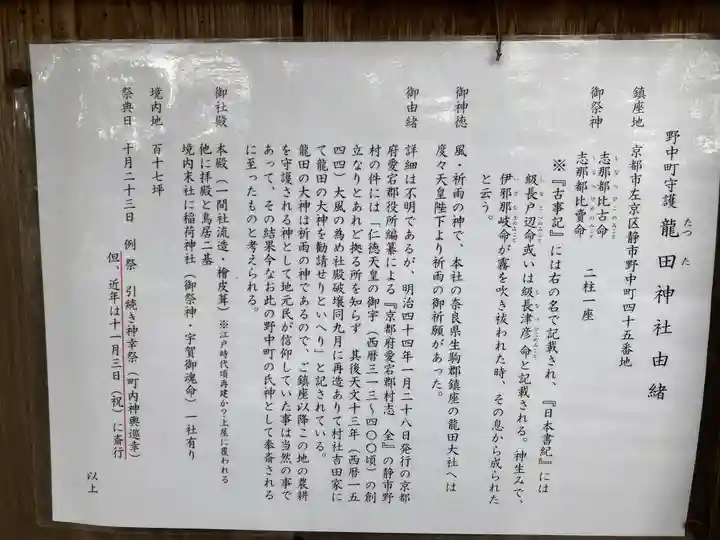 野中町守護 龍田神社由緒
たつた
鎮座地 京都市左京区静市野中町四十五番地
御祭神 志那都比古命
しなつひこのみこと
志那都比賣命 二柱一座
しなつひめのみこと
※『古事記』には右の名で記載され、『日本書紀』には
級長戸辺命或いは級長津彦命と記載される。神生みで、
伊邪那岐命が霧を吹き祓われた時、その息から成られた
と云う。
御神徳 風・祈雨の神で、本社の奈良県生駒郡鎮座の龍田大社へは
度々天皇陛下より祈雨の御祈願があった。
御由緒 詳細は不明であるが、明治四十四年一月二十八日発行の京都
府愛宕郡役所編纂による『京都府愛宕郡村志 全』の静市野
村の件には「仁徳天皇の御宇(西暦三一三~四〇〇頃)の創
立なりとあれど拠る所を知らず 其後天文十三年(西暦一五
四四)大風の為め社殿破壊同九月に再造ありて村社吉田家に
て龍田の大神を勧請せりといへり」と記されている。
龍田の大神は祈雨の神であるので、ご鎮座以降この地の農耕
を守護される神として地元民が信仰していた事は当然の事で
あって、その結果今なお此の野中町の氏神として奉斎される
に至ったものと考えられる。
御社殿 本殿(一間社流造・檜皮葺)※江戸時代頃再建か?上屋に覆われる
他に拝殿と鳥居二基
境内末社に稲荷神社(御祭神・宇賀御魂命)一社有り
境内地 百十七坪
祭典日 十月二十三日 例祭 引続き神幸祭(町内神輿巡幸)
但、近年は十一月三日(祝)に斎行
以上